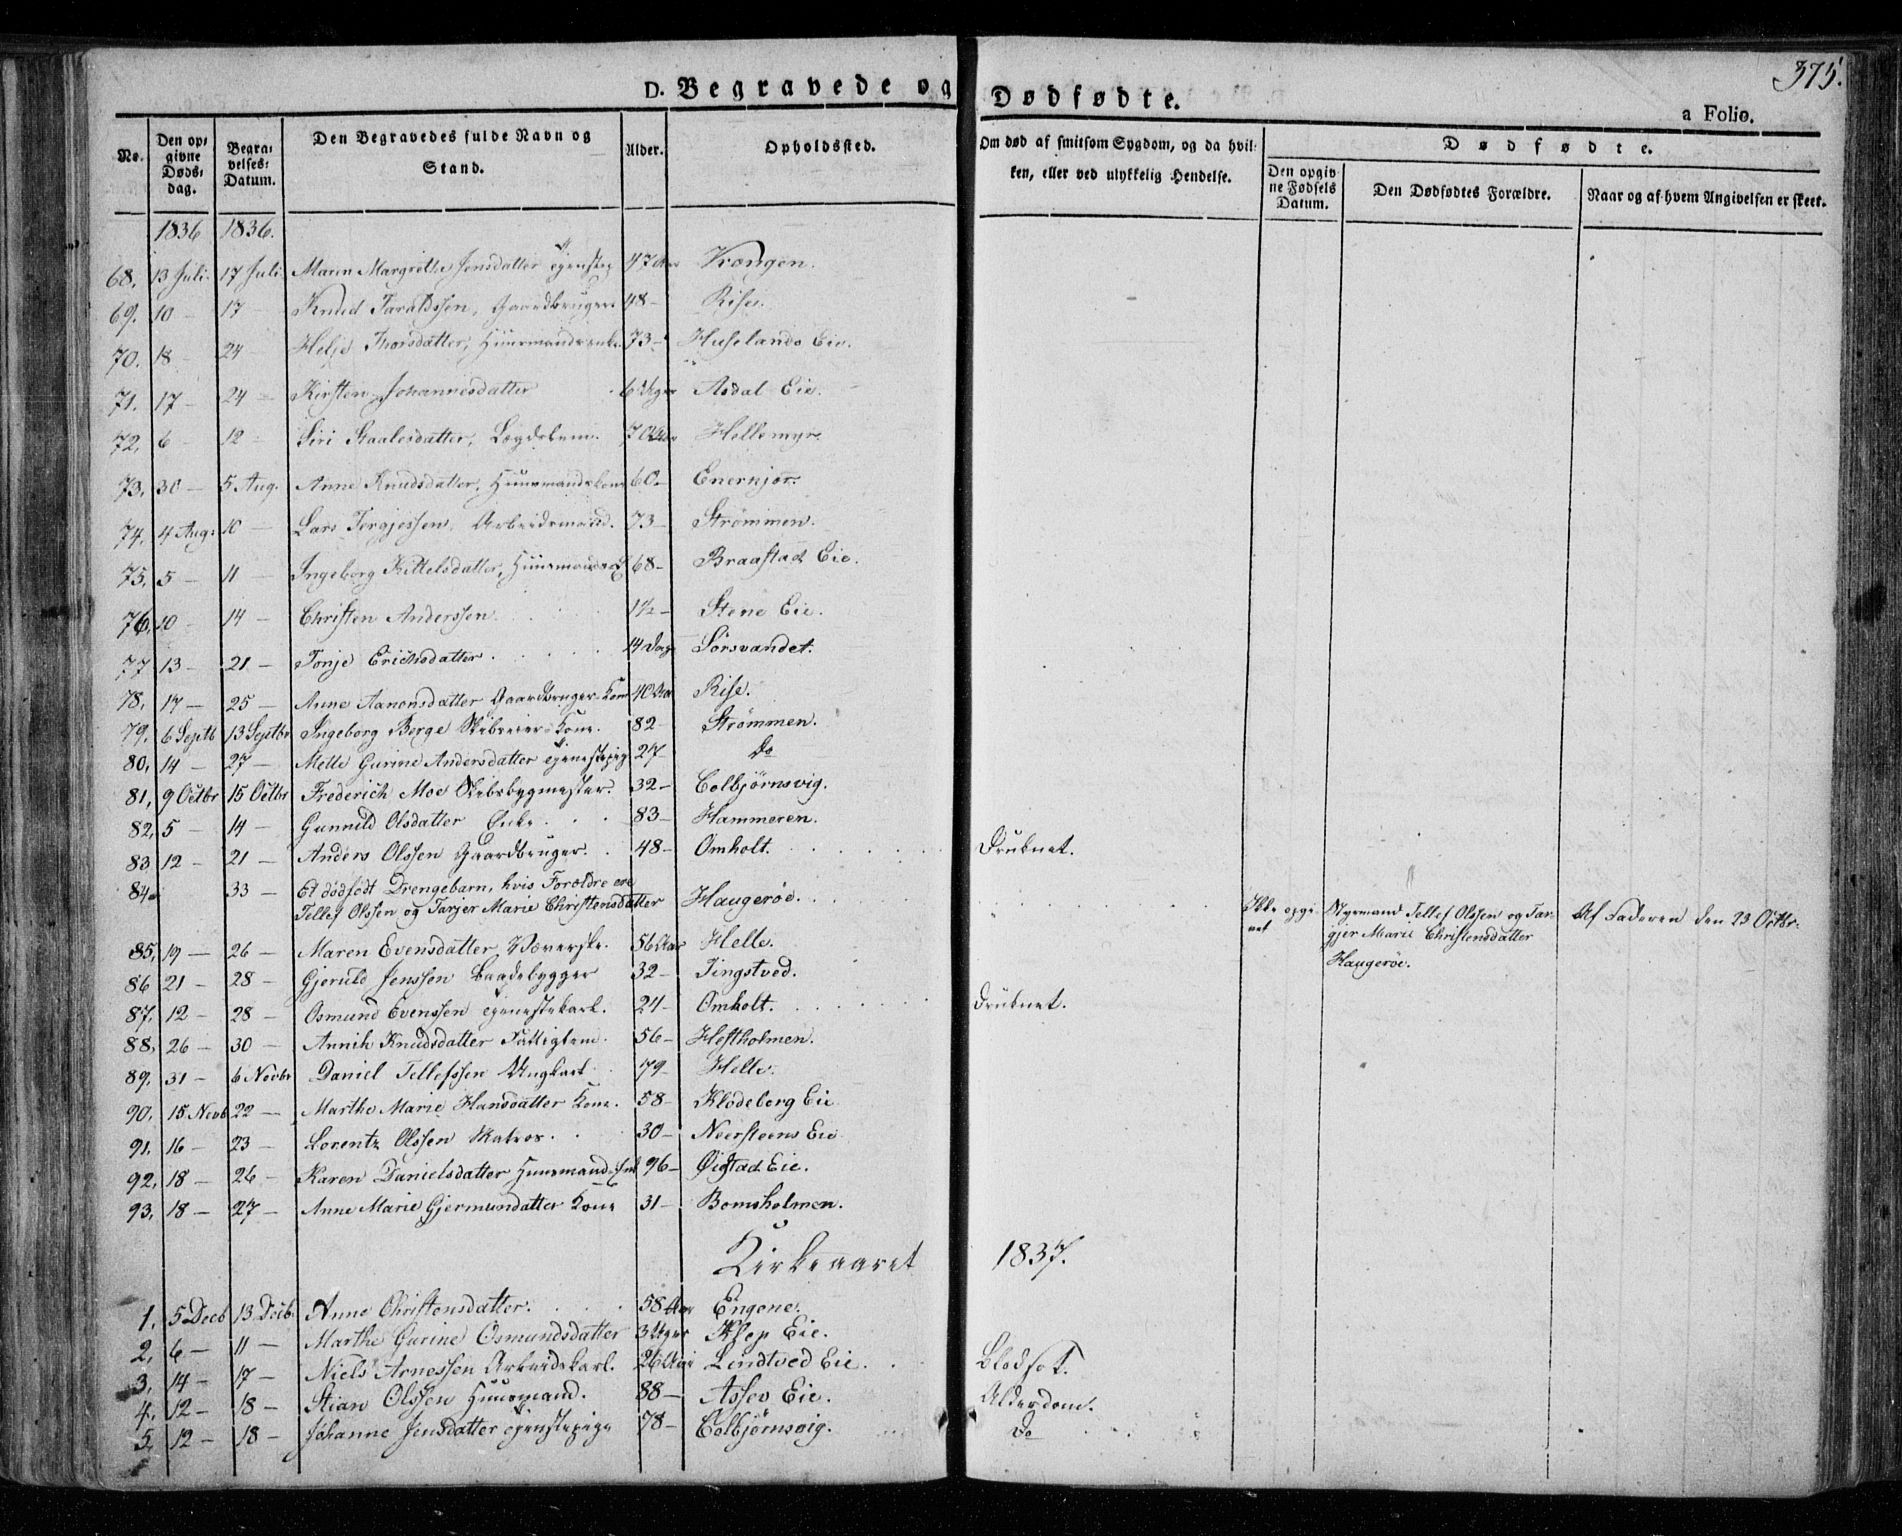 375.
D. Begravede og Dødfødte.
a Folio.
No. Den opgivne Dødsdag. Begravelses-Datum. Den Begravedes fulde Navn og Stand. Alder. Opholdssted. Om død af smitsom Sygdom, og da hvilken, eller ved ulykkelig Hendelse. Dødfødte.
Den opgivne Fødsels Datum. Den Dødfødtes Forældre. Naar og af hvem Angivelsen er skeet.
1836 1836.
68. 13 Juli 17 Juli Maren Margrethe Jensdatter 47 Aar Vrængen.
69. 10 — 17 — Knud Taraldssen, Gaardbruger 48 — Rise.
70. 18 — 24 — Helje Thorsdatter, Huusmandsenke 73 — Huselands Eie.
71. 17 — 24 — Kirsten Johannesdatter 6 Uger Asdal Eie.
72. 6 — 12 — Siri Staalesdatter, Lægdslem. 70 Aar Hellemyr.
73. 30 — 5 Aug. Anne Knudsdatter, Huusmandskone 60 — Enerkjær.
74. 4 Aug: 10 — Lars Tergjessen, Arbeidsmand. 73 — Strømmen.
75. 5 — 11 — Ingeborg Kittelsdatter, 68 — Braastad Eie.
76. 10 — 14 — Christen Anderssen 1½ — Stene Eie.
77. 13 — 21 — Tonje Erichsdatter. 14 Dage Sørsvandet.
78. 17 — 25 — Anne Aanonsdatter Gaardbruger Kone 40 Aar Rise.
79. 6 Septb 13 Septbr Ingeborg Berge Skibseier Kone. 82 — Strømmen.
80. 14 — 27 — Mette Gurine Andersdatter Tjenestepig 27 — Do
81. 9 Octbr 15 Octbr Frederich Moe Skibsbygmester. 32 — Colbjørnsvig.
82. 5 — 14 — Gunnild Olsdatter Enke. 83 — Hammeren.
83. 12 — 21 — Anders Olssen Gaardbruger. 48 — Omholt. Druknet.
84. 33 — Et dødfødt Drengebarn, hvis Forældre ere Haugerøe. Ikke opgi- Styrmand Tellef Olssen og Tar- Af Faderen den 23 Octbr.
Tellef Olssen og Tarjer Marie Christensdatter vet gjer Marie Christensdatter
Haugerøe.
85. 19 — 26 — Maren Evensdatter Væverske. 56 Aar Helle.
86 21 — 28 — Gjeruld Jenssen Baadebygger 32 — Tingstved.
87. 12 — 28 — Osmund Evenssen Tjenestekarl. 24 — Omholt. Druknet.
88. 26 — 30 — Annih Knudsdatter Fattiglem. 56 — Hestholmen.
89. 31 — 6 Novbr Daniel Tellefssen Ungkarl 79 — Helle.
90. 15 Novb 22 — Marthe Marie Hansdatter Kone. 58 — Klødeborg Eie
91. 16 — 23 — Lorentz Olssen Matros. 30 — Neersteens Eie
92. 18 — 26 — Karen Danielsdatter Huusmands Enk 96 — Øigstad Eie.
93. 18 — 27 — Anne Marie Gjermundatter Kone 31 — Bomsholmen.
Kirkeaaret 1837.
1. 5 Decb 13 Decb Anne Christensdatter. 58 Aar Engene.
2. 6 — 11 — Marthe Gurine Osmundsdatter 3 Uger Klep Eie.
3. 14 — 17 — Niels Arnessen Arbeidskarl. 26 Aar Lindtved Eie. Blodsot.
4. 12 — 18 — Stian Olssen Huusmand. 88 — Assev Eie. Alderdom.
5. 12 — 18 — Johanne Jensdatter Tjenestepige 78 — Colbjørnsvig. Do